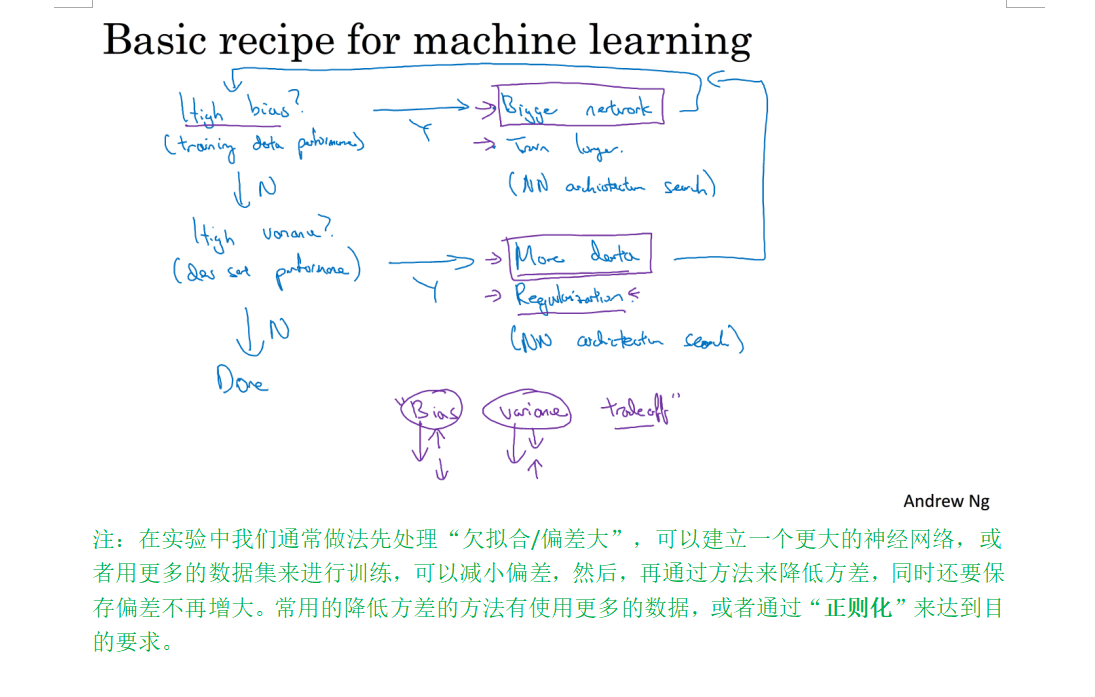 Basic recipe for machine learning
High bias? Y → Bigge network
(training data performance) → Train longer.
N (NN architecture search)
High variance?
(dev set performance) Y → More data
→ Regularization ←
N (NN architecture search)
Done
"Bias variance tradeoff"
Andrew Ng
注：在实验中我们通常做法先处理“欠拟合/偏差大”，可以建立一个更大的神经网络，或
者用更多的数据集来进行训练，可以减小偏差，然后，再通过方法来降低方差，同时还要保
存偏差不再增大。常用的降低方差的方法有使用更多的数据，或者通过“正则化”来达到目
的要求。